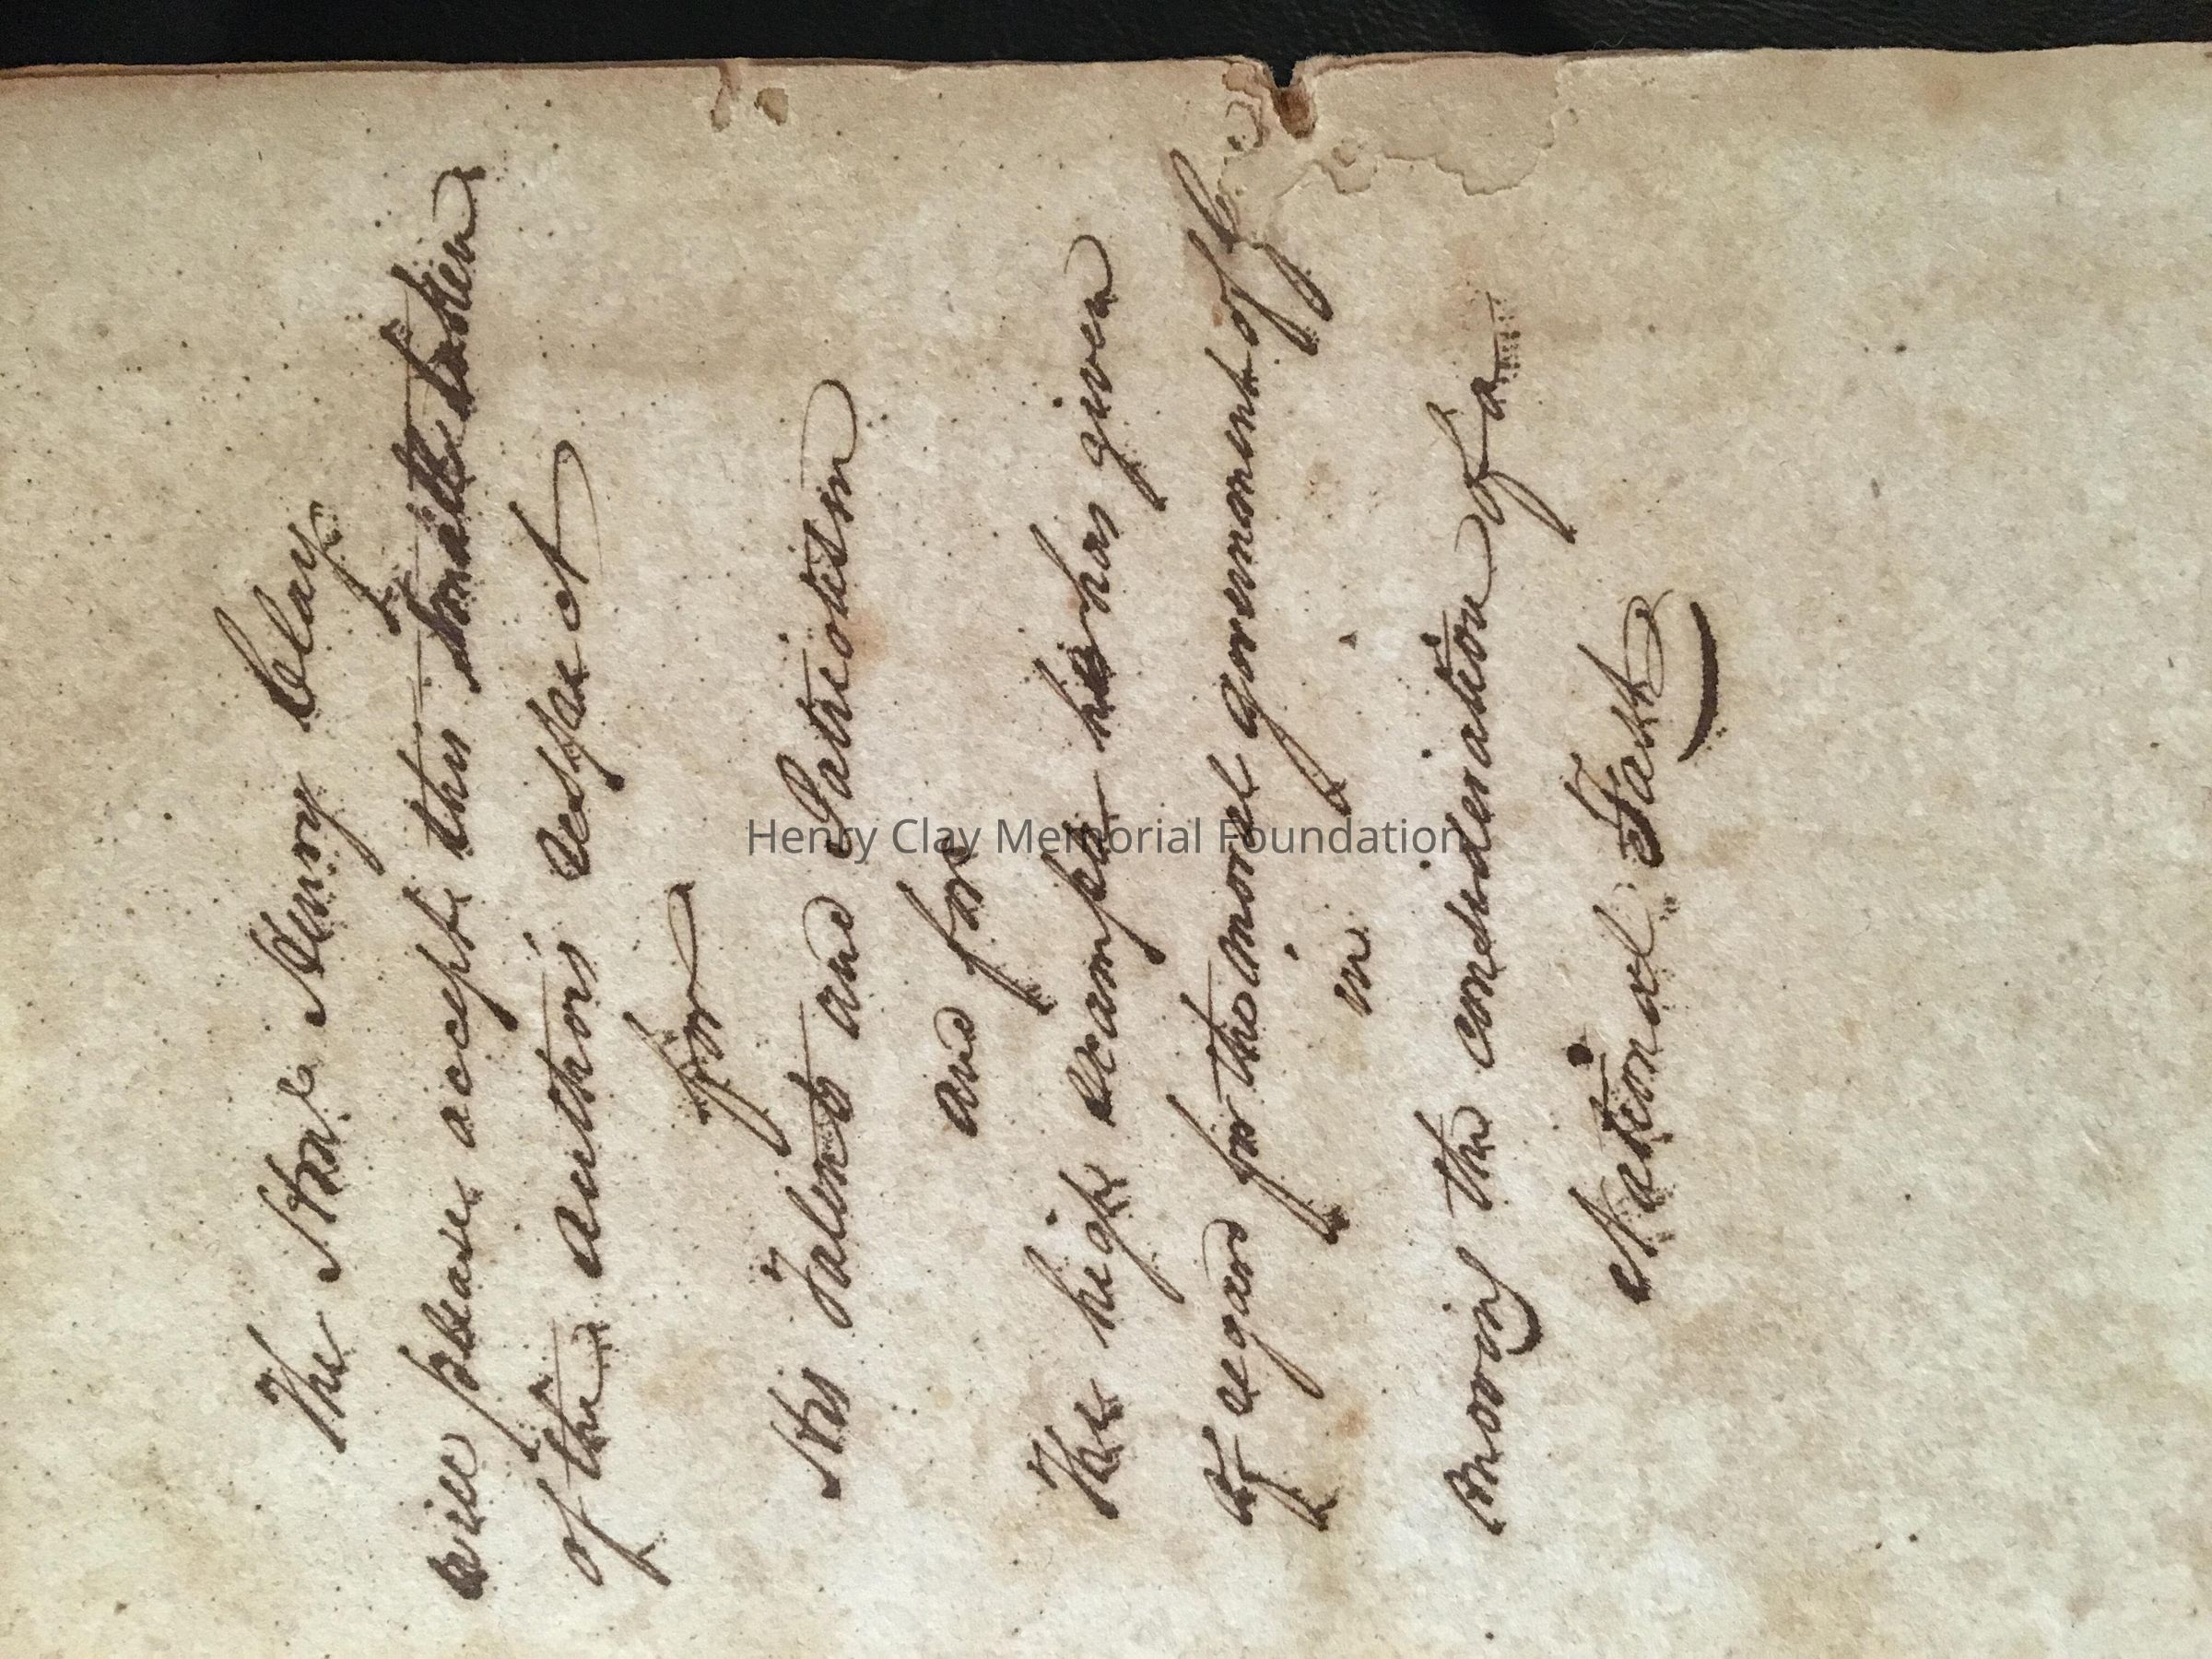 The Honl. Henry Clay
will please accept this small token
of the author's respect
for
His Talents and Patriotism
and for
The high example he has given
of regard for the moral government of
in
moving the consideration of a
National Fast
Henry Clay Memorial Foundation